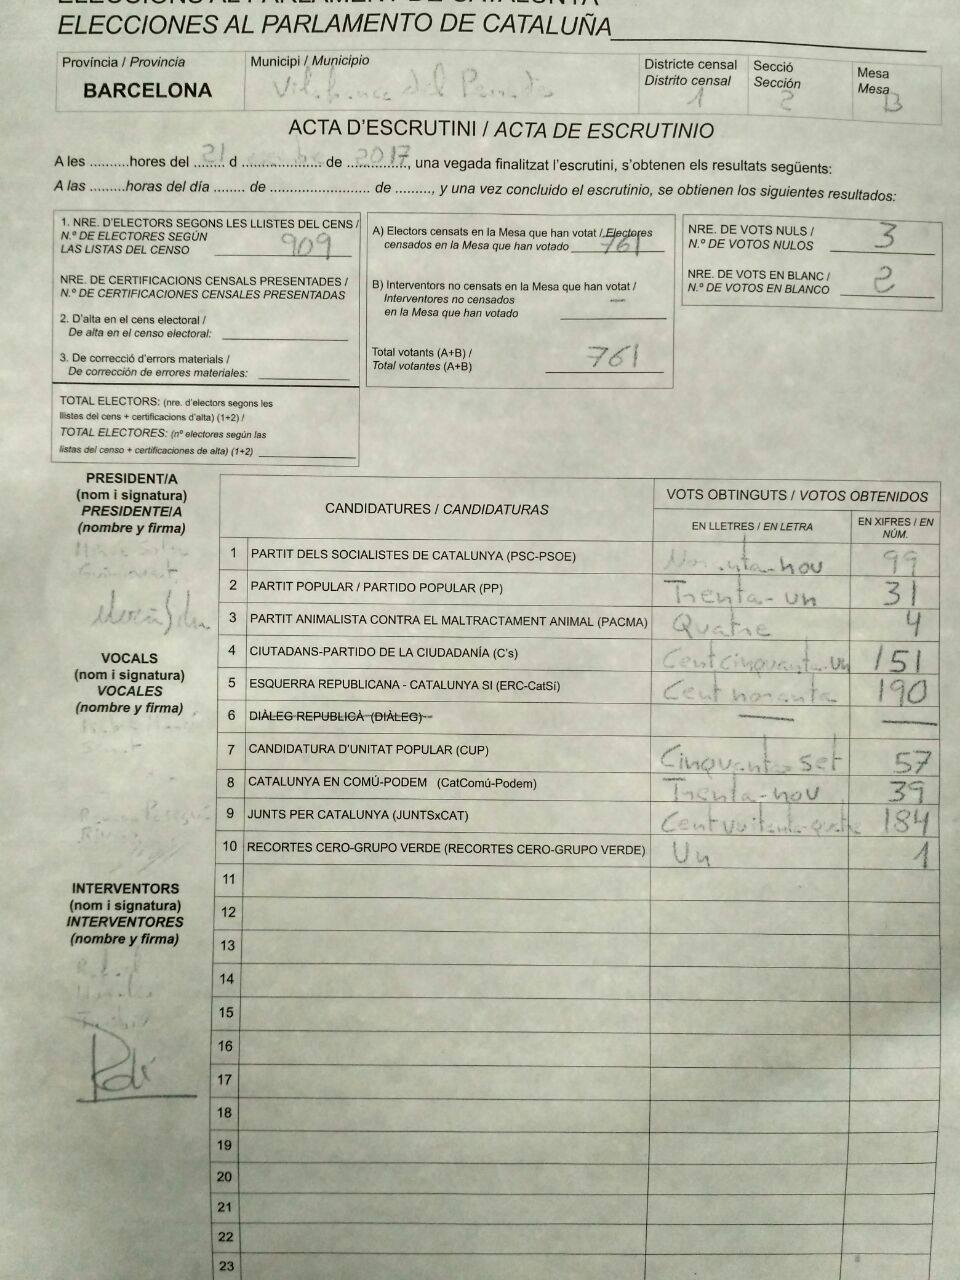 ELECCIONS AL PARLAMENT DE CATALUNYA
ELECCIONES AL PARLAMENTO DE CATALUÑA
Província / Provincia
BARCELONA
Municipi / Municipio
Vilafranca del Penedès
Districte censal
Distrito censal
1
Secció
Sección
2
Mesa
Mesa
B
ACTA D'ESCRUTINI / ACTA DE ESCRUTINIO
A les .........hores del 21 d ..................... de 2017, una vegada finalitzat l'escrutini, s'obtenen els resultats següents:
A las .........horas del día ........ de ......................... de ........., y una vez concluido el escrutinio, se obtienen los siguientes resultados:
1. NRE. D'ELECTORS SEGONS LES LLISTES DEL CENS /
N.º DE ELECTORES SEGÚN
LAS LISTAS DEL CENSO 909
NRE. DE CERTIFICACIONS CENSALS PRESENTADES /
N.º DE CERTIFICACIONES CENSALES PRESENTADAS
2. D'alta en el cens electoral /
De alta en el censo electoral:
3. De correcció d'errors materials /
De corrección de errores materiales:
TOTAL ELECTORS: (nre. d'electors segons les
llistes del cens + certificacions d'alta) (1+2) /
TOTAL ELECTORES: (nº electores según las
listas del censo + certificaciones de alta) (1+2)
A) Electors censats en la Mesa que han votat / Electores
censados en la Mesa que han votado 761
B) Interventors no censats en la Mesa que han votat /
Interventores no censados —
en la Mesa que han votado
Total votants (A+B) /
Total votantes (A+B) 761
NRE. DE VOTS NULS /
N.º DE VOTOS NULOS 3
NRE. DE VOTS EN BLANC /
N.º DE VOTOS EN BLANCO 2
PRESIDENT/A
(nom i signatura)
PRESIDENTE/A
(nombre y firma)
VOCALS
(nom i signatura)
VOCALES
(nombre y firma)
INTERVENTORS
(nom i signatura)
INTERVENTORES
(nombre y firma)
CANDIDATURES / CANDIDATURAS
VOTS OBTINGUTS / VOTOS OBTENIDOS
EN LLETRES / EN LETRA
EN XIFRES / EN NÚM.
1 PARTIT DELS SOCIALISTES DE CATALUNYA (PSC-PSOE) Noranta-nou 99
2 PARTIT POPULAR / PARTIDO POPULAR (PP) Trenta-un 31
3 PARTIT ANIMALISTA CONTRA EL MALTRACTAMENT ANIMAL (PACMA) Quatre 4
4 CIUTADANS-PARTIDO DE LA CIUDADANÍA (C's) Cent cinquanta-un 151
5 ESQUERRA REPUBLICANA - CATALUNYA SI (ERC-CatSí) Cent noranta 190
6 DIÀLEG REPUBLICÀ (DIÀLEG) — —
7 CANDIDATURA D'UNITAT POPULAR (CUP) Cinquanta-set 57
8 CATALUNYA EN COMÚ-PODEM (CatComú-Podem) Trenta-nou 39
9 JUNTS PER CATALUNYA (JUNTSxCAT) Cent vuitanta-quatre 184
10 RECORTES CERO-GRUPO VERDE (RECORTES CERO-GRUPO VERDE) Un 1
11
12
13
14
15
16
17
18
19
20
21
22
23